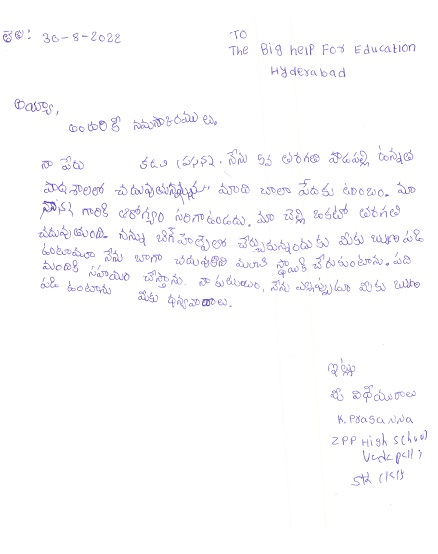 తేది: 30-8-2022
TO
The Big help For Education
Hyderabad
అయ్యా,
అందరికి నమస్కారములు.
నా పేరు కడలి ప్రసన్న. నేను 5వ తరగతి వాడపల్లి ఉన్నత
పాఠశాలలో చదువుతున్నాను. మాది చాలా పేదకు టుంబం. మా
నాన్న గారికి ఆరోగ్యం సరిగాఉండదు. మా చెల్లి ఒకటో తరగతి
చదువుతుంది. నన్ను బిగ్ హెల్ప్ లో చేర్చుకున్నందుకు మీకు ఋణ పడి
ఉంటాము నేను బాగా చదువుకొని మంచి స్థాయికి చేరుకుంటాను. పది
మందికి సహాయం చేస్తాను. నా కుటుంబం, నేను ఎప్పుడూ మీకు ఋణ
పడి ఉంటాను మీకు ధన్యవాదాలు.
ఇట్లు
మీ విధేయురాలు
K. Prasanna
ZPP High School
Vadapalli
5th class